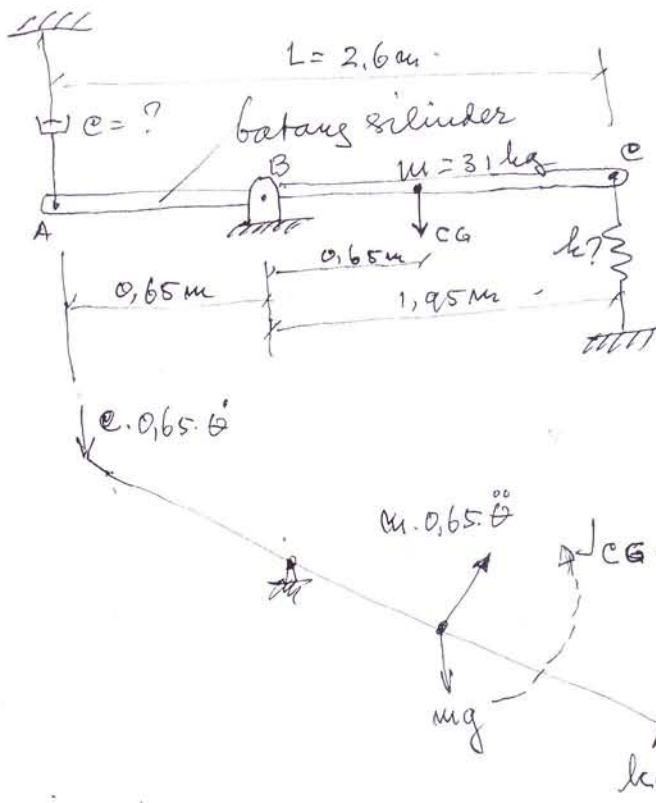 L = 2,6 m
c = ?
batang silinder
B
m = 31 kg
C
A
CG
k?
0,65 m
0,65 m
1,95 m
c. 0,65. θ̇
m. 0,65. θ̈
CG
mg
k